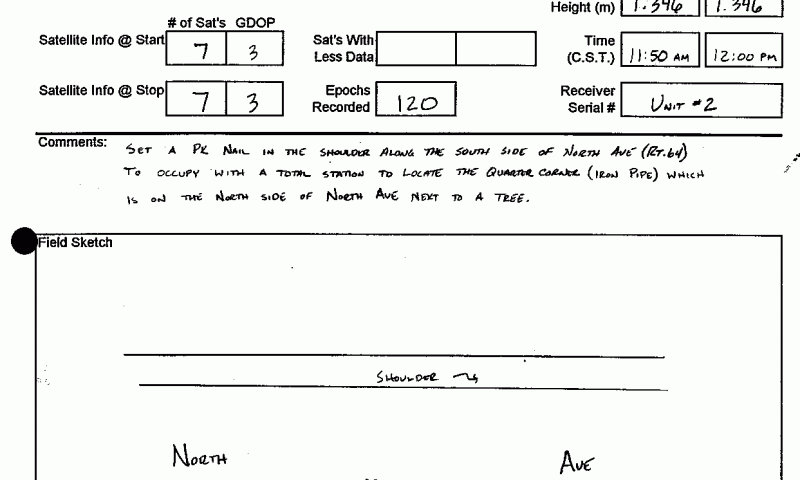 Height (m) 1.346 1.346
# of Sat's GDOP
Satellite Info @ Start 7 3 Sat's With Less Data Time (C.S.T.) 11:50 AM 12:00 PM
Satellite Info @ Stop 7 3 Epochs Recorded 120 Receiver Serial # UNIT #2
Comments: SET A PK NAIL IN THE SHOULDER ALONG THE SOUTH SIDE OF NORTH AVE (RT.64)
TO OCCUPY WITH A TOTAL STATION TO LOCATE THE QUARTER CORNER (IRON PIPE) WHICH
IS ON THE NORTH SIDE OF NORTH AVE NEXT TO A TREE.
Field Sketch
SHOULDER
NORTH AVE